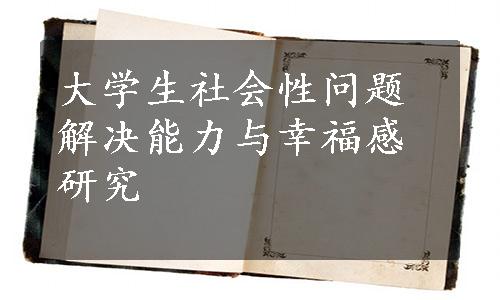 大学生社会性问题
解决能力与幸福感
研究